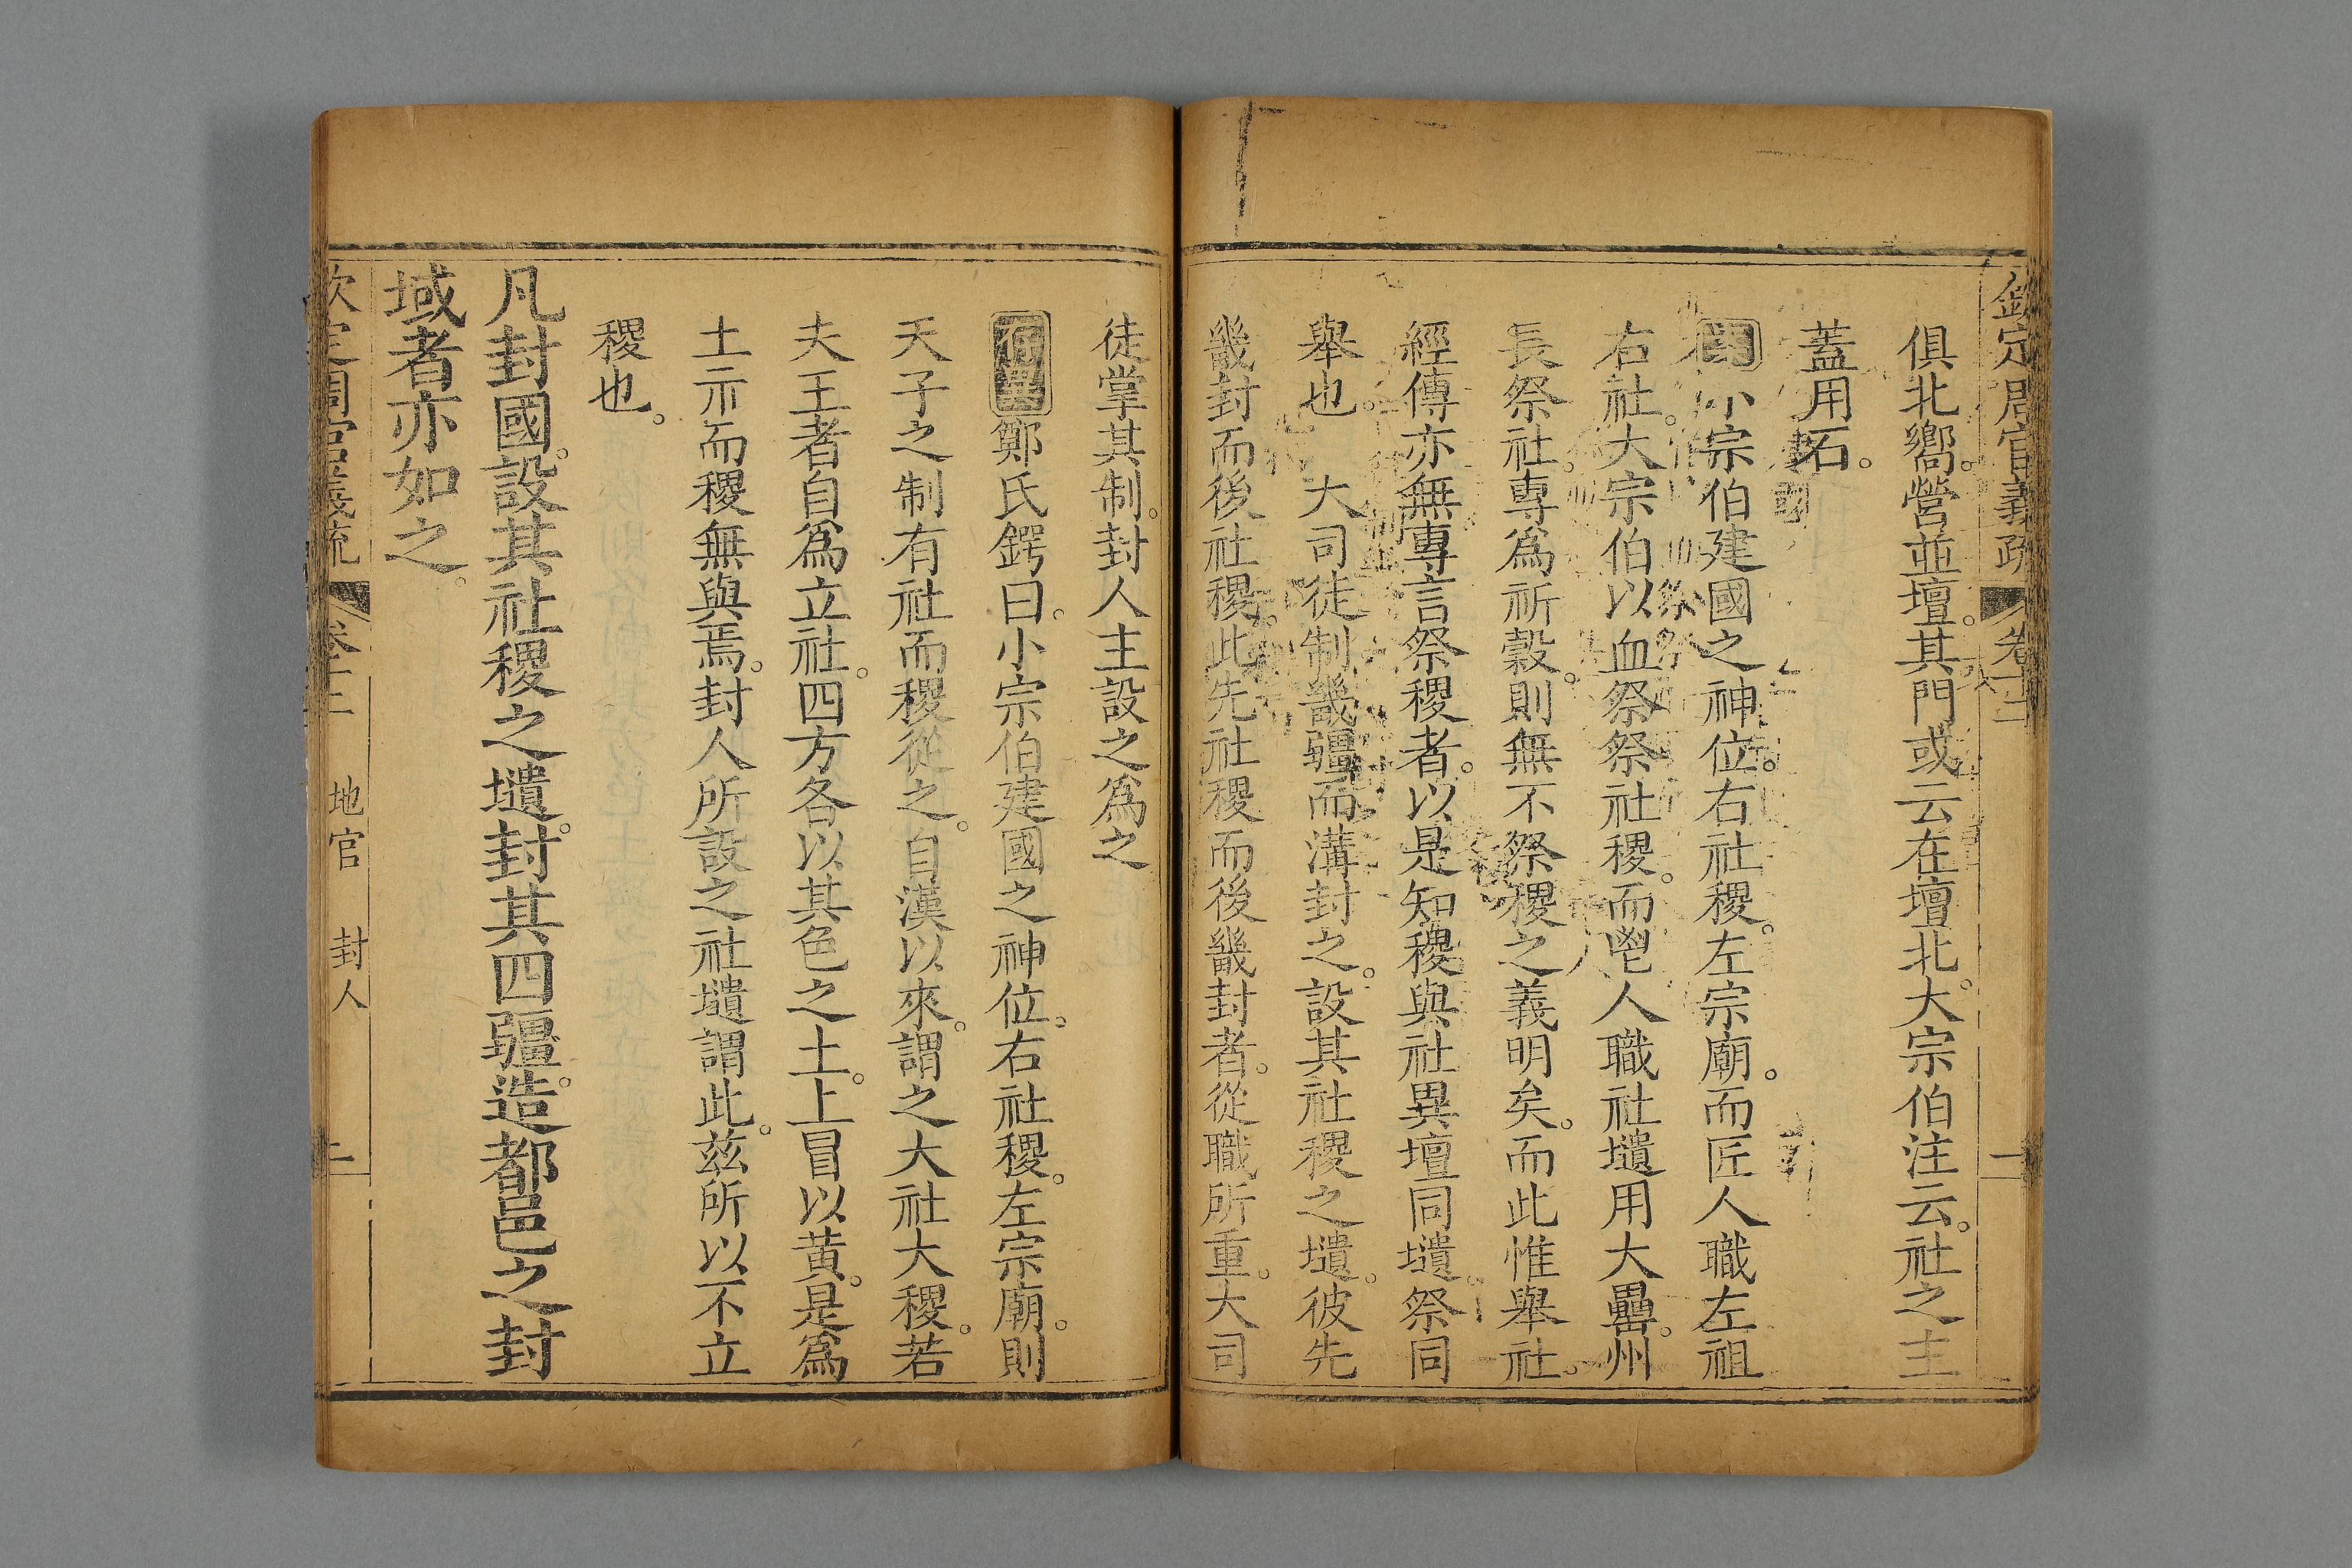 欽定周官義疏 卷十二 一
俱北嚮。營並壇。其門或云在壇北。大宗伯注云。社之主
蓋用石。
小宗伯建國之神位。右社稷。左宗廟。而匠人職左祖
右社。大宗伯以血祭祭社稷。而鬯人職社壝用大罍。州
長祭社。專爲祈穀。則無不祭稷之義明矣。而此惟舉社。
經傳亦無專言祭稷者。以是知稷與社異壇同壝。祭同
舉也。 大司徒制畿疆而溝封之。設其社稷之壝。彼先
畿封而後社稷。此先社稷而後畿封者。從職所重。大司
徒掌其制。封人主設之爲之
鄭氏鍔曰。小宗伯建國之神位。右社稷。左宗廟。則
天子之制有社而稷從之。自漢以來。謂之大社大稷。若
夫王者自爲立社。四方各以其色之土。上冒以黄。是爲
土示而稷無與焉。封人所設之社壝謂此。兹所以不立
稷也。
凡封國。設其社稷之壝。封其四疆。造都邑之封
域者亦如之。
欽定周官義疏 卷十二 地官 封人 二